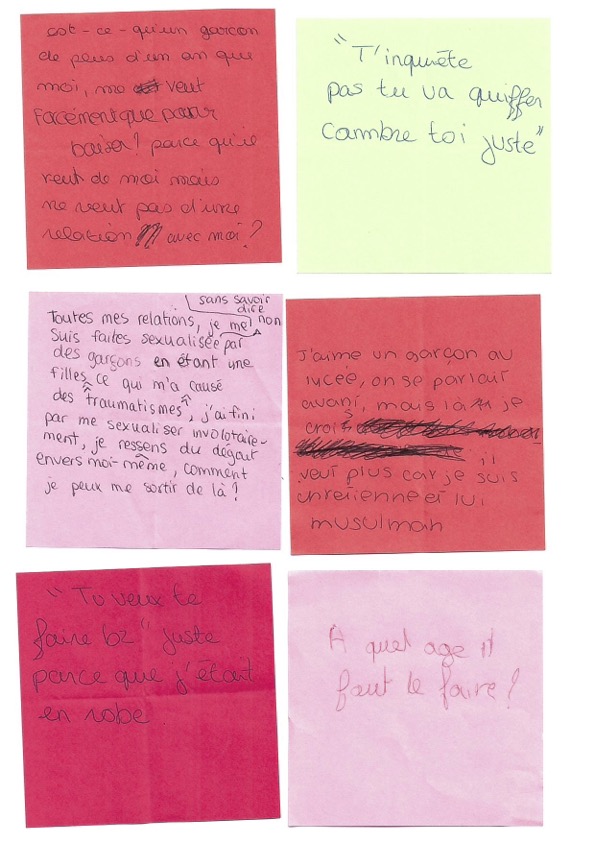 est-ce-qu'un garçon
de plus d'un an que
moi, me veut
Facémentque pour
baiser? parce qu'il
veut de moi mais
ne veut pas d'une
relation avec moi?
"T'inquiète
pas tu va quiffer
cambre toi juste"
sans savoir
dire
non
Toutes mes relations, je me
Suis faites sexualisée par
des garçons en étant une
filles, ce qui m'a causé
des "traumatismes", j'ai fini
par me sexualiser involotaire-
ment, je ressens du dégout
envers moi-même, comment
je peux me sortir de là?
J'aime un garçon au
lycée, on se parlait
avant, mais là je
crois
il
veut plus car je suis
chretienne et lui
musulman
"Tu veux te
faire bz" juste
parce que j'était
en robe
A quel age il
faut le faire?